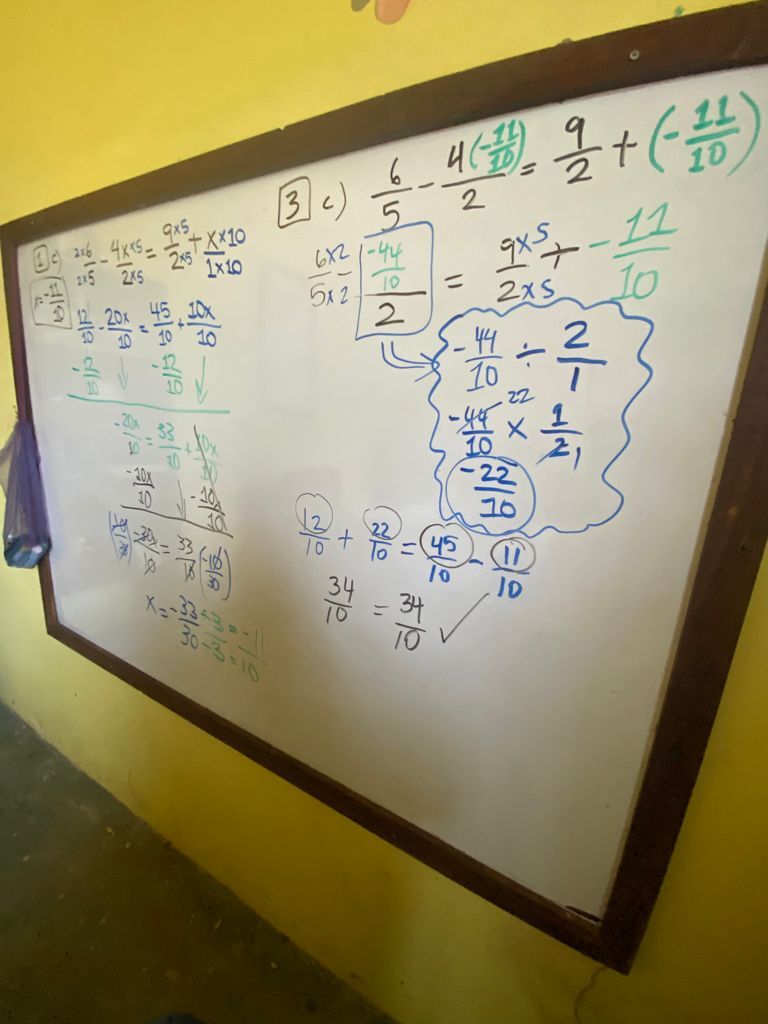 1 c) 2x6/2x5 - 4x x5/2x5 = 9x5/2x5 + x x10/1x10
x=-11/10
12/10 - 20x/10 = 45/10 + 10x/10
-12/10 ↓ -12/10 ↓
-20x/10 = 33/10 + 10x/10
-10x/10 ↓ -10x/10
-30x/10 = 33/10
x = -33/30 ÷3/÷3 = -11/10
3 c) 6/5 - 4(-11/10)/2 = 9/2 + (-11/10)
6x2/5x2 - -44/10/2 = 9x5/2x5 + -11/10
-44/10 ÷ 2/1
-44/10 22 x 1/2 1
-22/10
12/10 + 22/10 = 45/10 - 11/10
34/10 = 34/10 ✓